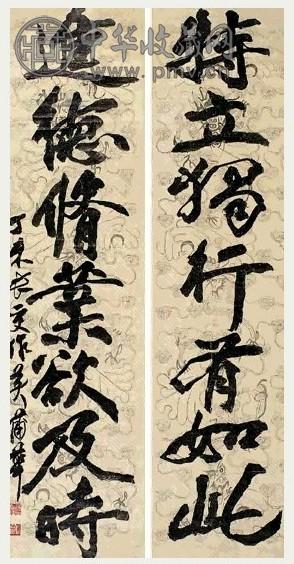 中华收藏网
特立獨行有如此
進德脩業欲及時
丁未長夏作英蒲華